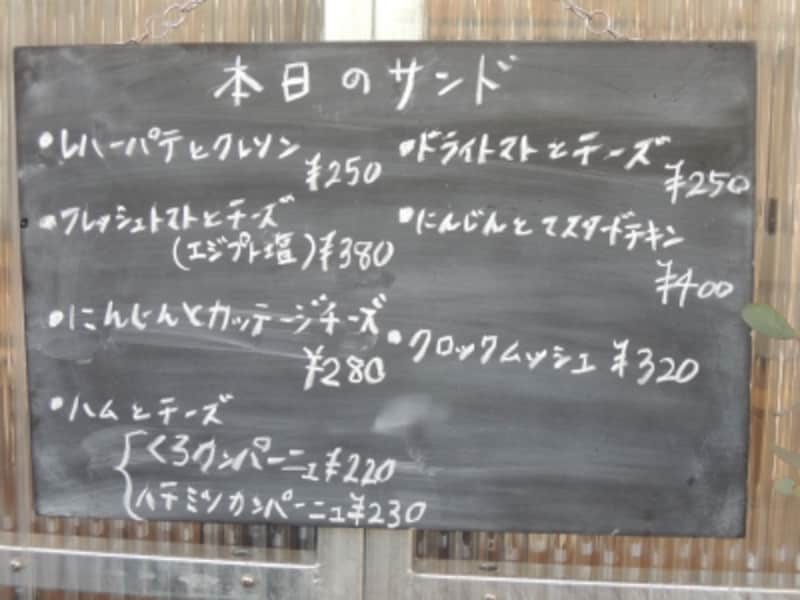 本日のサンド
・レバーパテとクレソン
¥250
・フレッシュトマトとチーズ
(エジプト塩)¥380
・にんじんとカッテージチーズ
¥280
・ハムとチーズ
くろカンパーニュ¥220
ハチミツカンパーニュ¥230
・ドライトマトとチーズ
¥250
・にんじんとマスタードチキン
¥400
・クロックムッシュ ¥320